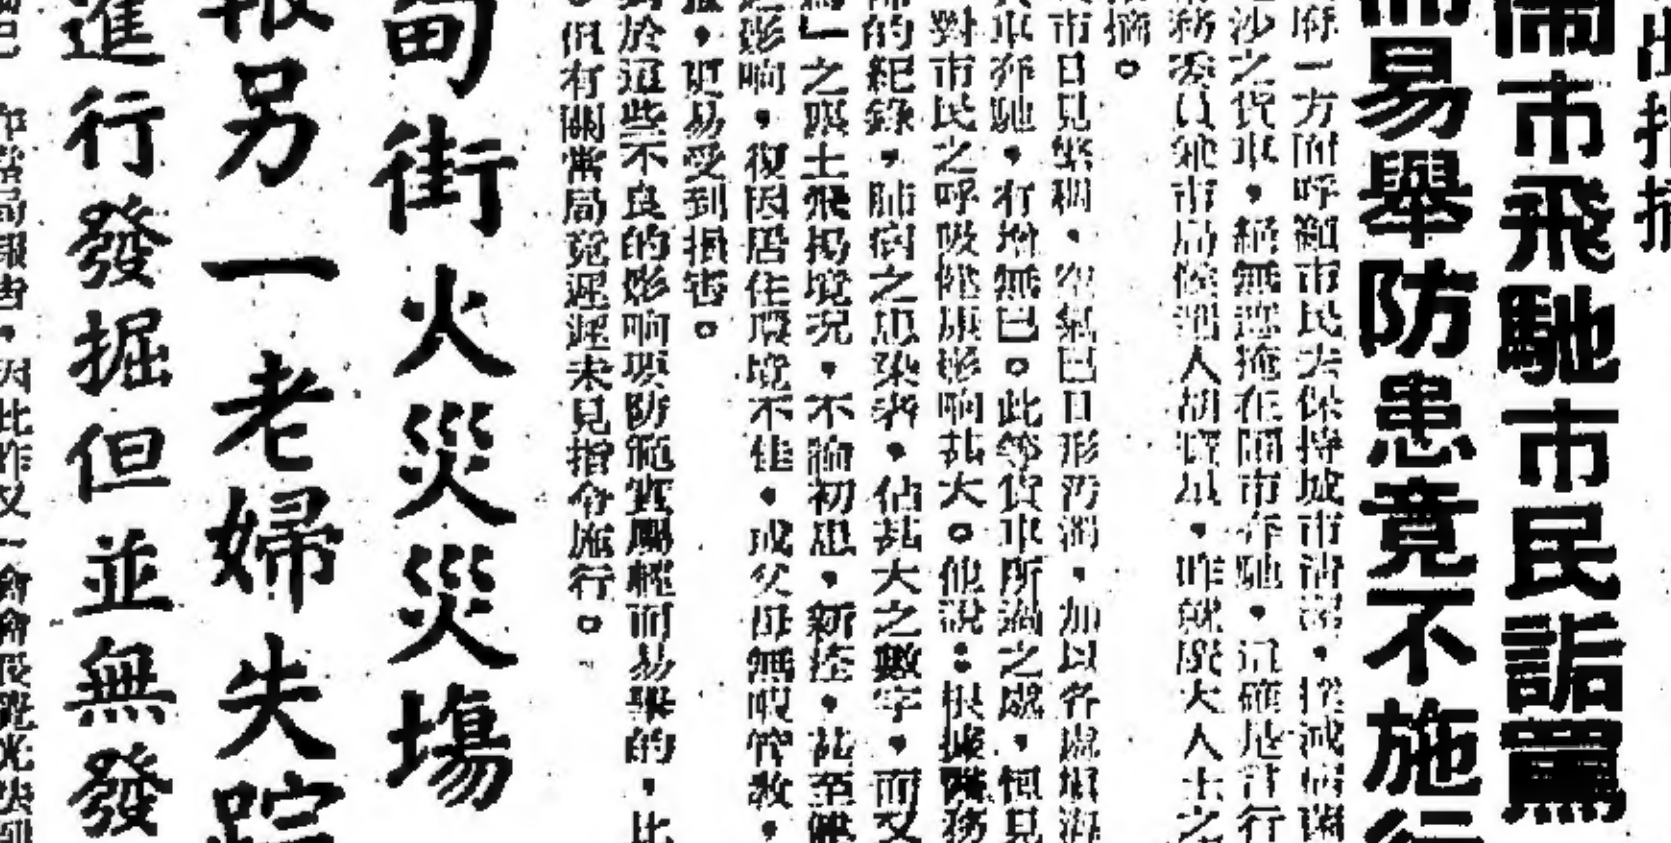 出指摘
鬧市飛馳市民詬罵
而易舉防患竟不施行
府一方面呼籲市民去保持城市清潔，撲滅病菌
沙之貨車，絕無遮掩在鬧市奔馳，這確是言行
務委員兼市局候選人胡 ，昨就廣大人士之
摘。
市日見繁稠，空氣已日形汚濁，加以各處填海
車奔馳，有增無已。此等貨車所過之處，恒見
對市民之呼吸健康影响甚大。他說：根據醫務
的紀錄，肺癆之患染者，佔甚大之數字，而又
」之喪土飛揚境況，不論初患，新痊，甚至健
影响，復因居住環境不佳，或父母無暇管教，
，更易受到損害。
於這些不良的影响項防範實屬輕而易舉的，比
但有關當局竟遲遲未見指令施行。
甸街火災災塲
報另一老婦失踪
進行發掘但並無發
當局報告，因此昨又